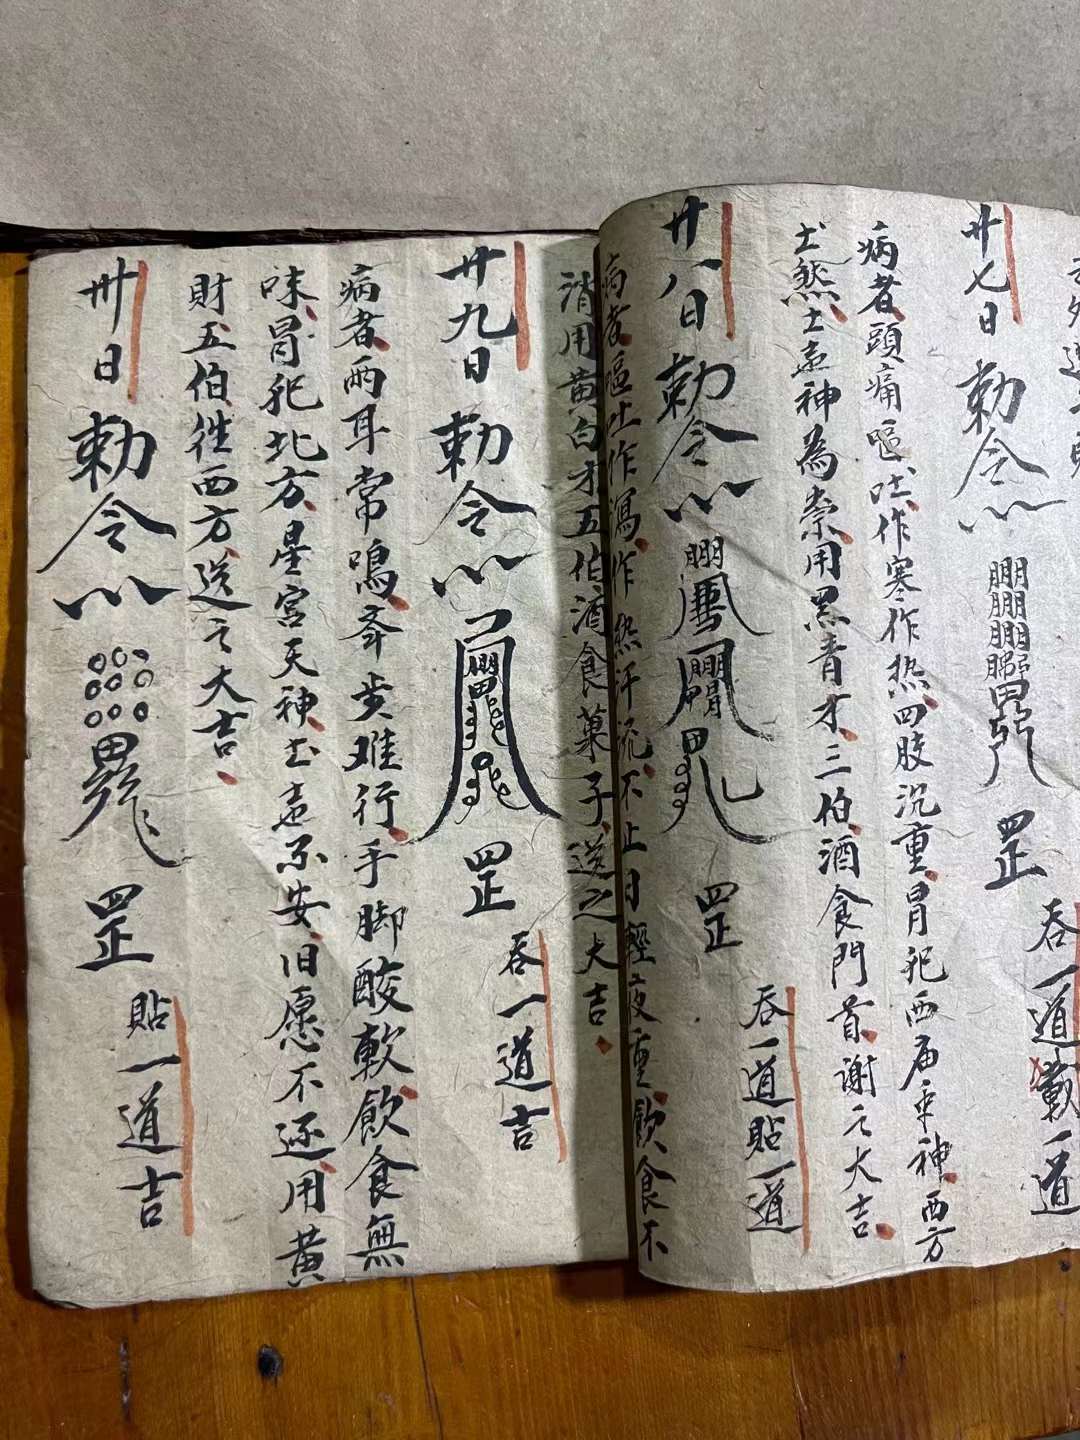 廿七日 勅令
罡
吞一道 載一道
病者頭痛嘔吐作寒作热四肢沉重冒犯西庙神西方
土煞土神為祟用黑青才三伯酒食門首謝之大吉
廿八日 勅令
罡
吞一道貼一道
病者嘔吐作瀉作热汗流不止日輕夜重飲食不
消用黄白才五伯酒食菓子送之大吉
廿九日 勅令
罡
吞一道吉
病者兩耳常鳴步难行手脚酸軟飲食無
味冒犯北方星宫天神土不安旧愿不还用黄
財五伯徃西方送之大吉
卅日 勅令
罡
貼一道吉